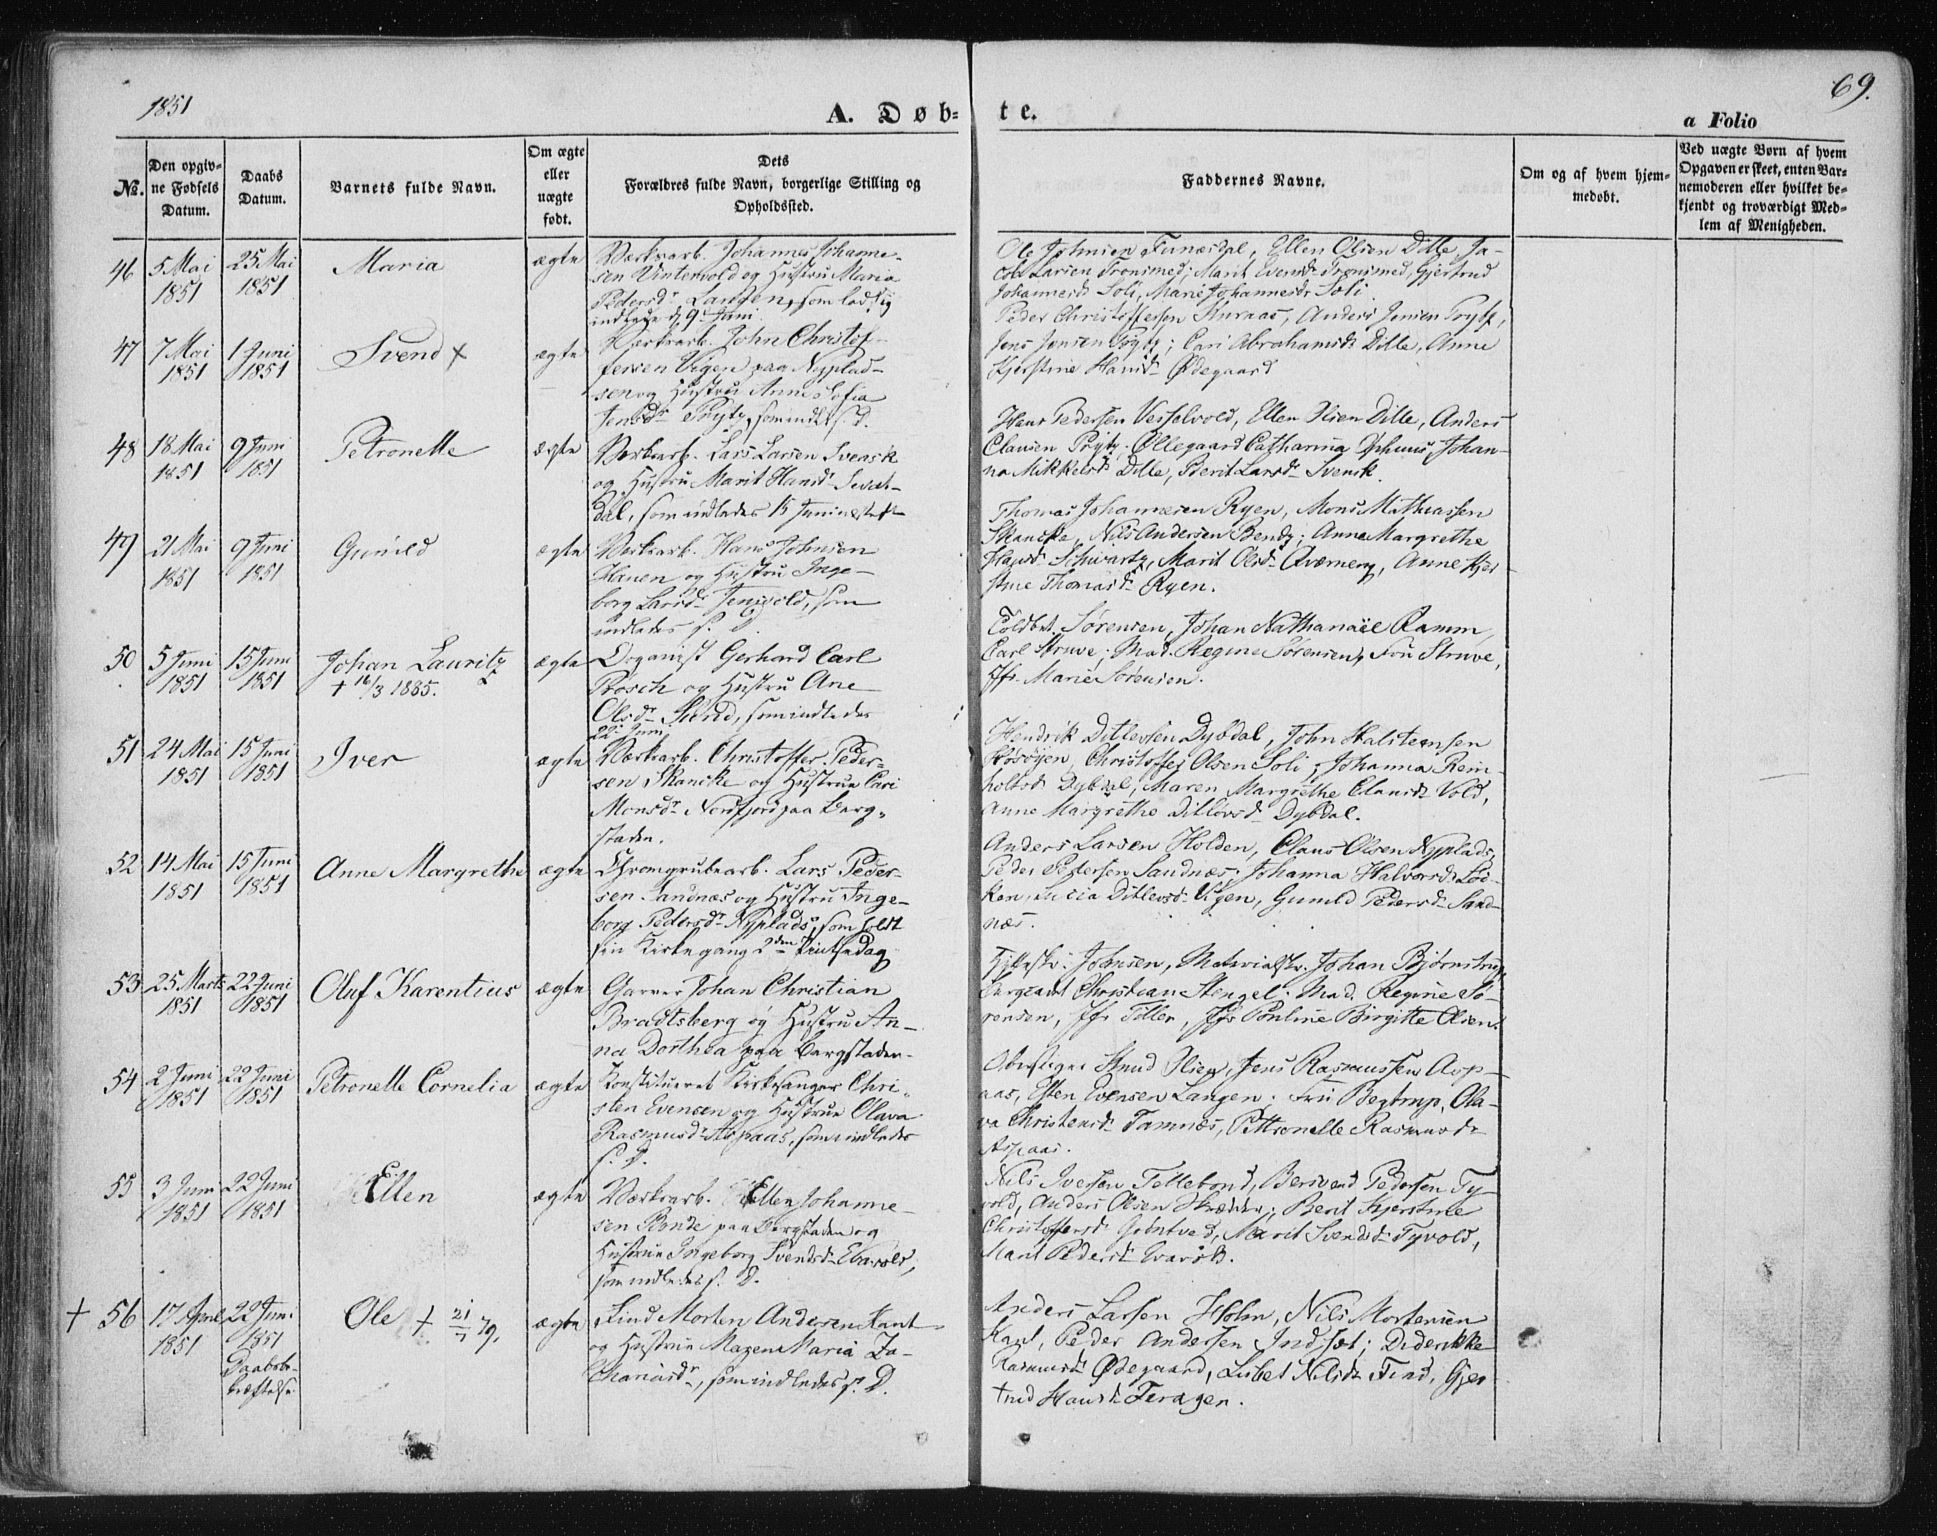 1851
69.
A. Døb-
te.
a Folio
No.
Den opgiv-
ne Fødsels
Datum.
Daabs
Datum.
Barnets fulde Navn.
Om ægte
eller
uægte
født.
Dets
Forældres fulde Navn, borgerlige Stilling og
Opholdssted.
Faddernes Navne.
Om og af hvem hjem-
medøbt.
Ved uægte Børn af hvem
Opgaven er skeet, enten Bar-
nemoderen eller hvilket be-
kjendt og troværdigt Med-
lem af Menigheden.
46
5 Mai
1851
25 Mai
1851
Maria
ægte
Værksarb. Johannes Johanne-
sen Vintervold og Hustru Maria
Pedersdr som lod sig
indlede d 9 Juni
Ole Johnsen Funæsdal, Ellen Olsen Dille, Ja-
cob Larsen Tronsmed; Marit Evensdr Tronsmed, Gjertrud
Johannesdr Soli, Marie Johannesdr Soli.
47
7 Mai
1851
1 Juni
1851
Svend +
ægte
Værksarb. John Christof-
fersen Vigen paa Nyplad-
sen og Hustru Anne Sofia
Jensdr Prytz, som indl. s. D.
Peder Christoffersen Anders Jensen Prytz,
Jens Jensen Prytz; Cari Abrahamsdr Dille, Anne
Kjerstine Hansdr Ødegaard
48
18 Mai
1851
9 Juni
1851
Petronelle
ægte
Værksarb. Lars Larsen Svensk
og Hustru Marit Hansdr
dal, som indledes 15 Juni næstef.
Hans Pedersen Vesselvold, Ellen Olsen Dille, Anders
Clausen Prytz; Ollegaard Catharina Johan-
na Mikkelsdr Dille, Berit Larsdr Svensk.
49
21 Mai
1851
9 Juni
1851
Gunild
ægte
Værksarb. Hans Johnsen
Hanen og Hustru Inge-
borg Larsdr Jensvold, som
indledes s. D.
Thomas Johannesen Ryen, Mons Mathiassen
Skancke, Nils Andersen Bendz; Anne Margrethe
Hansdr Schwartz, Marit Olsdr Aværnerg, Anne Kjer-
stine Thomasdr Ryen.
50
5 Juni
1851
15 Juni
1851
Johan Lauritz
+ 16/3 1885.
ægte
Organist Gerhard Carl
Bosch og Hustru Ane
Olsdr Sund, som indledes
22 Juni
Toldbet. Sørensen, Johan Nathanaël Ramm,
Carl Struve; Mad. Regine Sørensen, Fru Struve,
Jfr. Marie Sørensen.
51
24 Mai
1851
15 Juni
1851
Iver
ægte
Værksarb. Christoffer Peder-
sen Skancke og Hustrue Cari
Monsdr Nordfjord paa Berg-
staden.
Hendrik Ditlevsen Dybdal, John Halsteensen
Røsøyen, Christoffer Olsen Soli; Johanna Rein-
holtsdr Dybdal, Maren Margrethe Clausdr Vold,
Anne Margrethe Ditlevsdr Dybdal.
52
14 Mai
1851
15 Juni
1851
Anne Margrethe
ægte
Chromgrubearb. Lars Peder-
sen Sandnæs og Hustru Inge-
borg Pedersdr Nyplads, som holdt
sin Kirkegang 2den Pintsedag
Anders Larsen Holden, Claus Olsen Nyplads,
Peder Pedersen Sandnæs; Johanna Halvorsdr Løk-
ken, Lucia Ditlevsdr Vigen, Gunild Pedersdr Sand-
næs.
53
25 Marts
1851
22 Juni
1851
Oluf Karentius
ægte
Garver Johan Christian
Bradtsberg og Hustru An-
na Dorthea paa Bergstaden.
Johnsen, Materialsk. Johan Bjørnstrup,
Sergeant Christian Stengel; Mad. Regine Sø-
rensen, Jfr Teller, Jfr Pouline Birgitte Olsen.
54
2 Juni
1851
22 Juni
1851
Petronelle Cornelia
ægte
Konstitueret Kirkesanger Chri-
sten Evensen og Hustrue Olava
Rasmusdr Aspaas, som indledes
s. D.
Oberstiger Knud Olsen, Jens Rasmussen Asp-
aas, Esten Evensen Langen; Fru Begtrup, Ola-
va Christensdr Tamnes, Pettronelle Rasmusdr
Aspaas.
55
3 Juni
1851
22 Juni
1851
Ellen
ægte
Værksarb. Ellen Johanne-
sen Bonde paa Bergstaden og
Hustrue Ingeborg Svendsdr
som indledes s. D.
Nils Iversen Tellebond, Bersvend Pedersen Ty-
vold, Anders Olsen Skrædder; Berit Kjerstine
Christoffersdr Grøntved, Marit Svendsdr Tyvold,
Marit Pedersdr
+ 56
17 April
1851
22 Juni
1851
Daabsbe-
kræftelse
Ole + 21/7 79.
ægte
Find Morten Andersen Kant
og Hustrue Mazen Maria Za-
chariasdr, som indledes s. D.
Anders Larsen Holm, Nils Mortensen
Kant, Peder Andersen Indset; Diderikke
Rasmusdr Ødegaard, Lisbet Nilsdr Find, Gjer-
trud Hansdr Feragen.